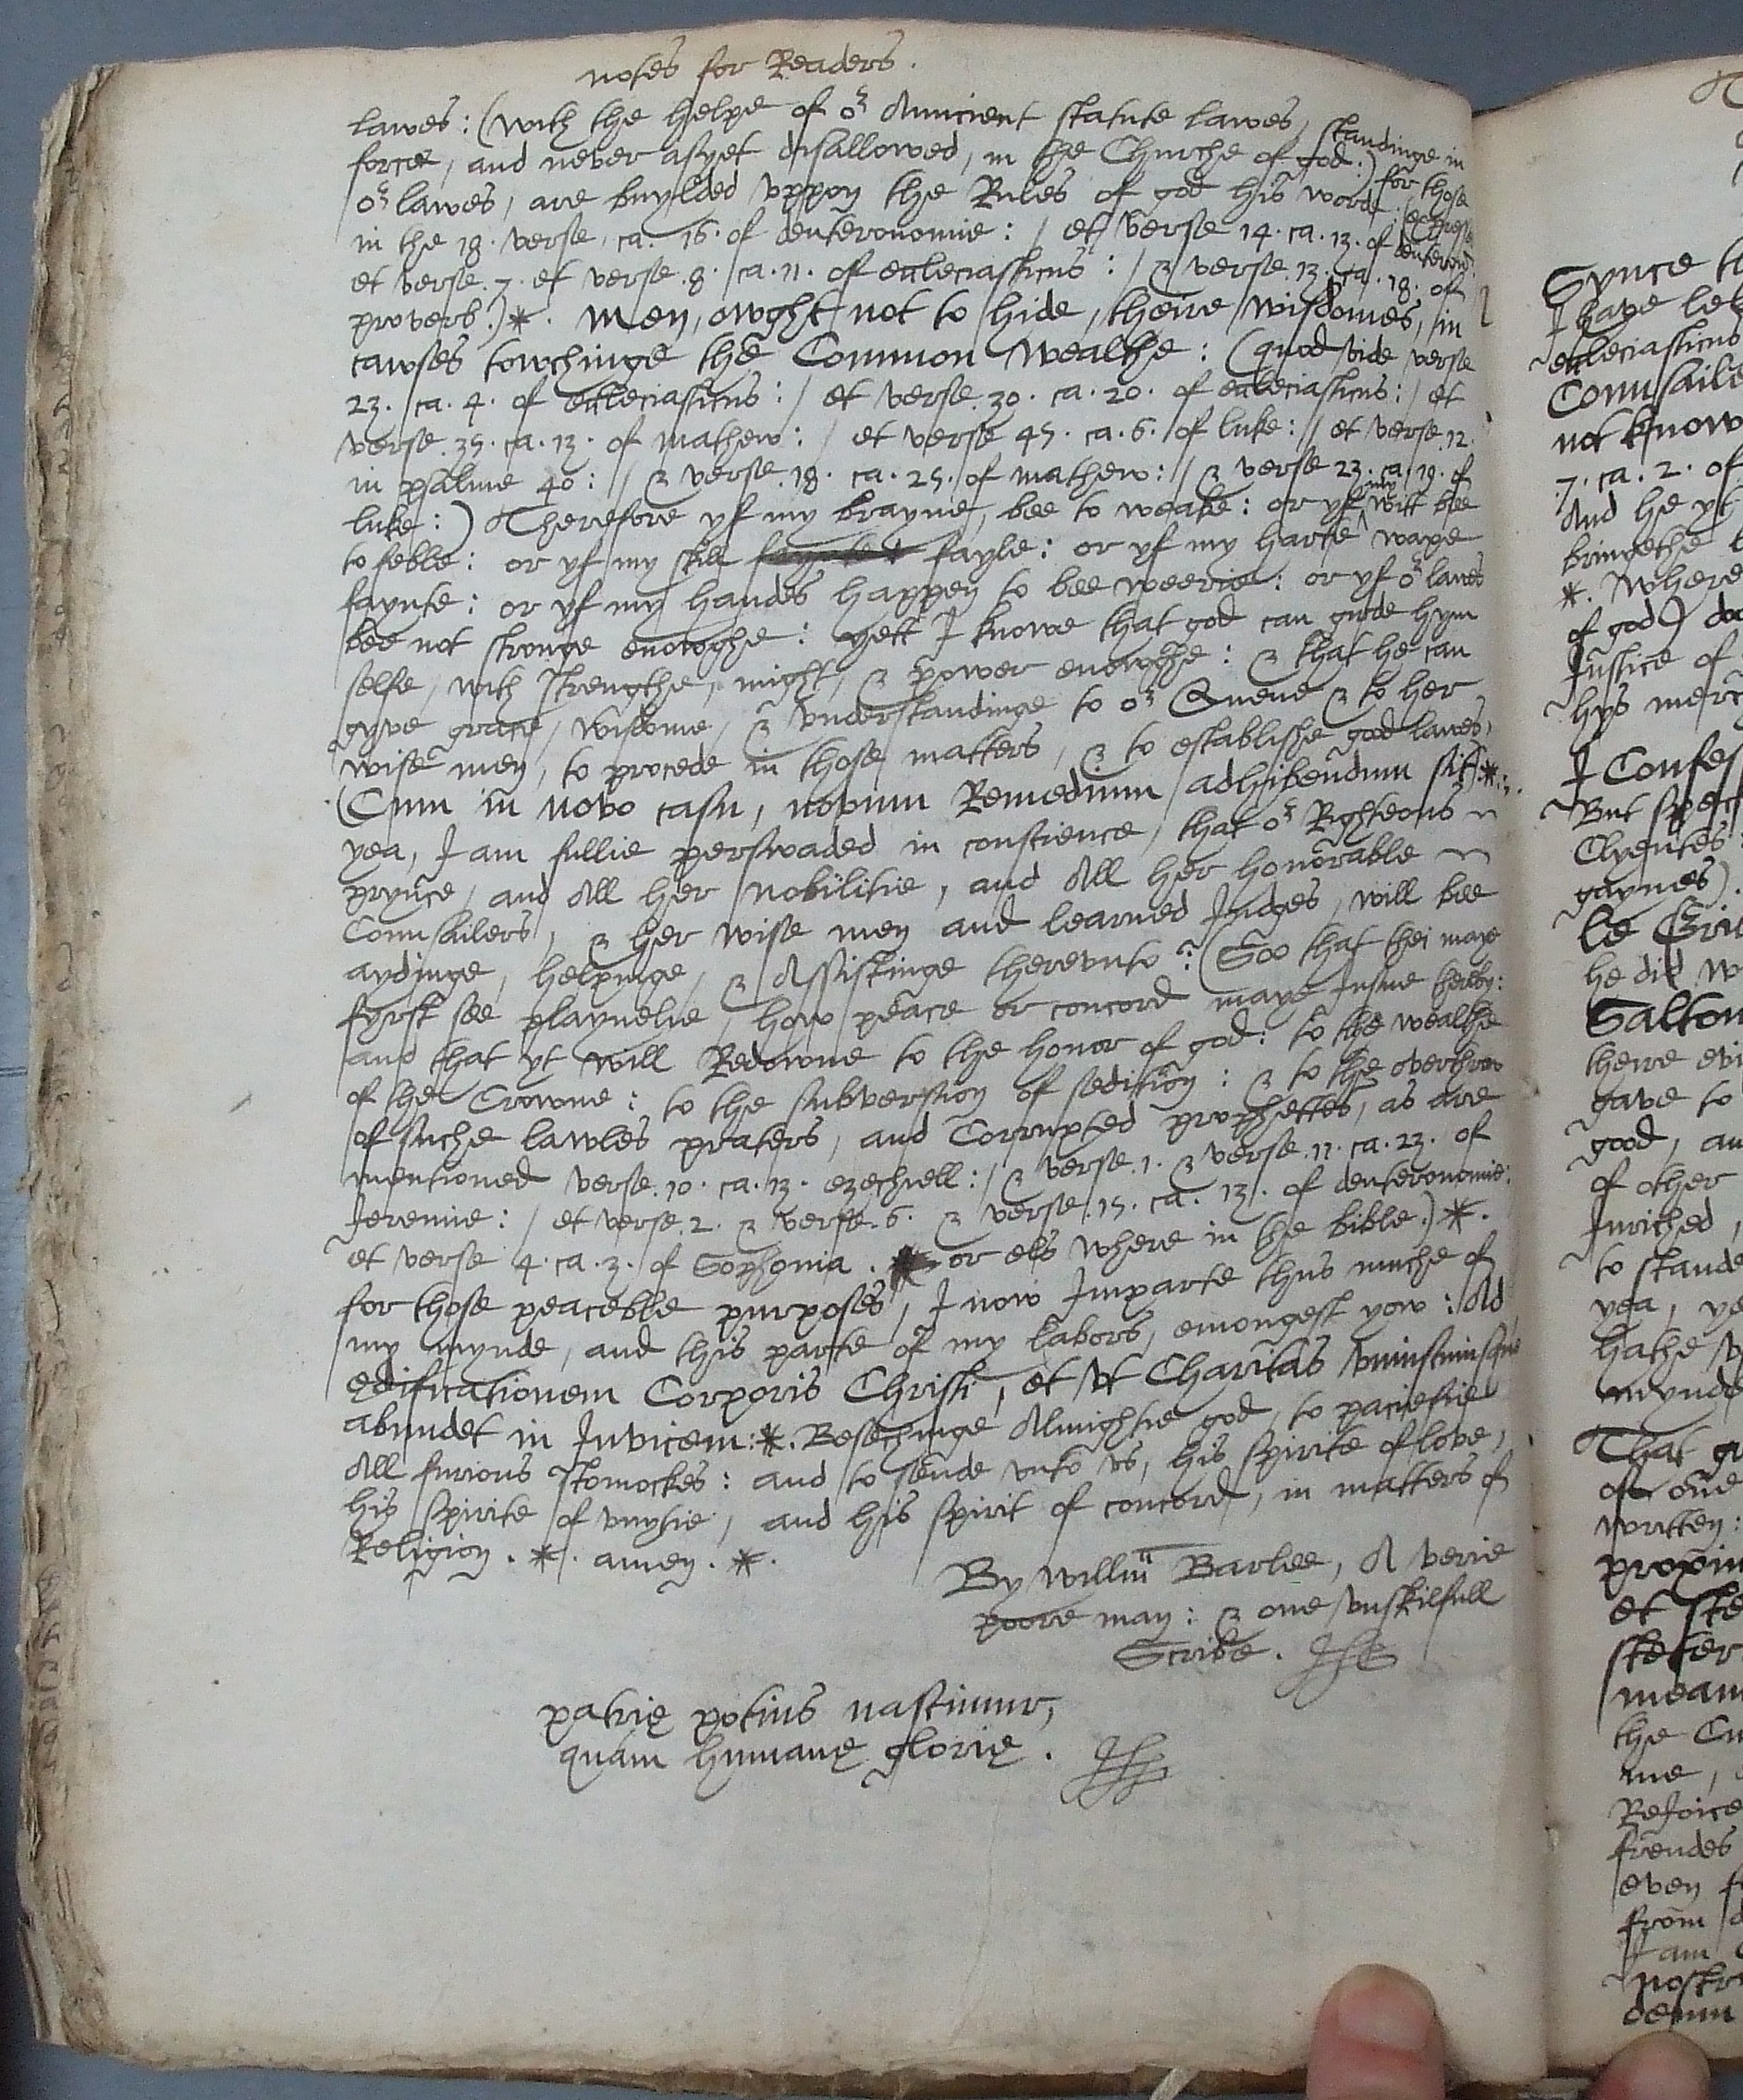 notes for Readers.
lawes: (with the helpe of or Auncient statute lawes, standinge in
force, and never as yet disallowed, in the Churche of god:) for those
or lawes, are buylded vppon the Rules of god his worde: (expresse
in the 18. verse, ca. 16. of deuteronomie: / et verse 14. ca. 13. of deuteron:
et verse. 7. et verse. 8. ca. 11. of ecclesiasticus: / & verse. 13. ca. 18. of
proverb.)*. Men, owght not to hide, theire wisdomes, in
cawses towchinge the Common wealthe: (quod vide verse
23. ca. 4. of ecclesiasticus: / et verse. 30. ca. 20. of ecclesiasticus: / et
verse. 35. ca. 13. of mathew: / et verse 45. ca. 6. of luke: / et verse. 12.
in psalme 40: / & verse. 18. ca. 25. of mathew: / & verse 23. ca. 19. of
luke:) Therefore yf my brayne, bee to weake: or yf my witt bee
to feble: or yf my skill fayle: or yf my harte waxe
faynte: or yf my handes happen to bee weerie: or yf or lawes
bee not stronge enowghe: yett I knowe that god can guide hym
selfe, with strengthe, might, & power enowghe: & that he can
gyve grace, wisdome, & vnderstandinge to or Quene & to her
wise men, to procede in those matters, & to establishe good lawes,
(Cum in novo casu, novum Remedium adhibendum sit)*:.
yea, I am fullie perswaded in conscience, that or Righteous
prynce, and All her Nobilitie, and All her honorable
Counsailers, & her wise men and learned Judges, will bee
aydinge, helpinge, & Assistinge therevnto: (Soo that thei maye
fyrst see playnelie, how peace or concord maye Insue therby:
and that yt will Redowne to the honor of god: to the wealthe
of the Crowne: to the subversion of sedition: & to the overthrow
of suche lawles praters, and Corrupted prophettes, as are
mentioned verse. 10. ca. 13. ezechiell: / & verse. 1. & verse. 11. ca. 23. of
Jeremie: / et verse. 2. & verse. 6. & verse. 15. ca. 13. of deuteronomie:
et verse 4. ca. 3. of Sophonia. or els where in the bible.)*.
for those peaceble purposes, I now Imparte thus muche of
my mynde, and this parte of my labors, emongest yow: Ad
edificationem Corporis Christi, et vt Charitas vniuscuiusque
abundet in Invicem:*. Besechinge Almightie god, to pacifie
All furious stomockes: and to sende vnto vs, his spirite of love,
his spirite of vnytie, and his spirit of concord, in matters of
Religion. *. amen. *.
By Willm Barlee, A verie
poore man: & one vnskilfull
Scribe.
patrię potius nascimur,
quam humanę glorię.
Synce
I have
ecclesiasticus
Counsaile
not know
7. ca. 2. of
And he yt
bringethe
*. Where
of god)
Justice of
hys
I
But
Clyentes
gaynes).
le
he did
theire
gave to
good,
of other
Inriched,
to stande
yea,
hathe
mynde
That
of one
written:
et
the
me,
Rejoice
frendes
even
from
I am